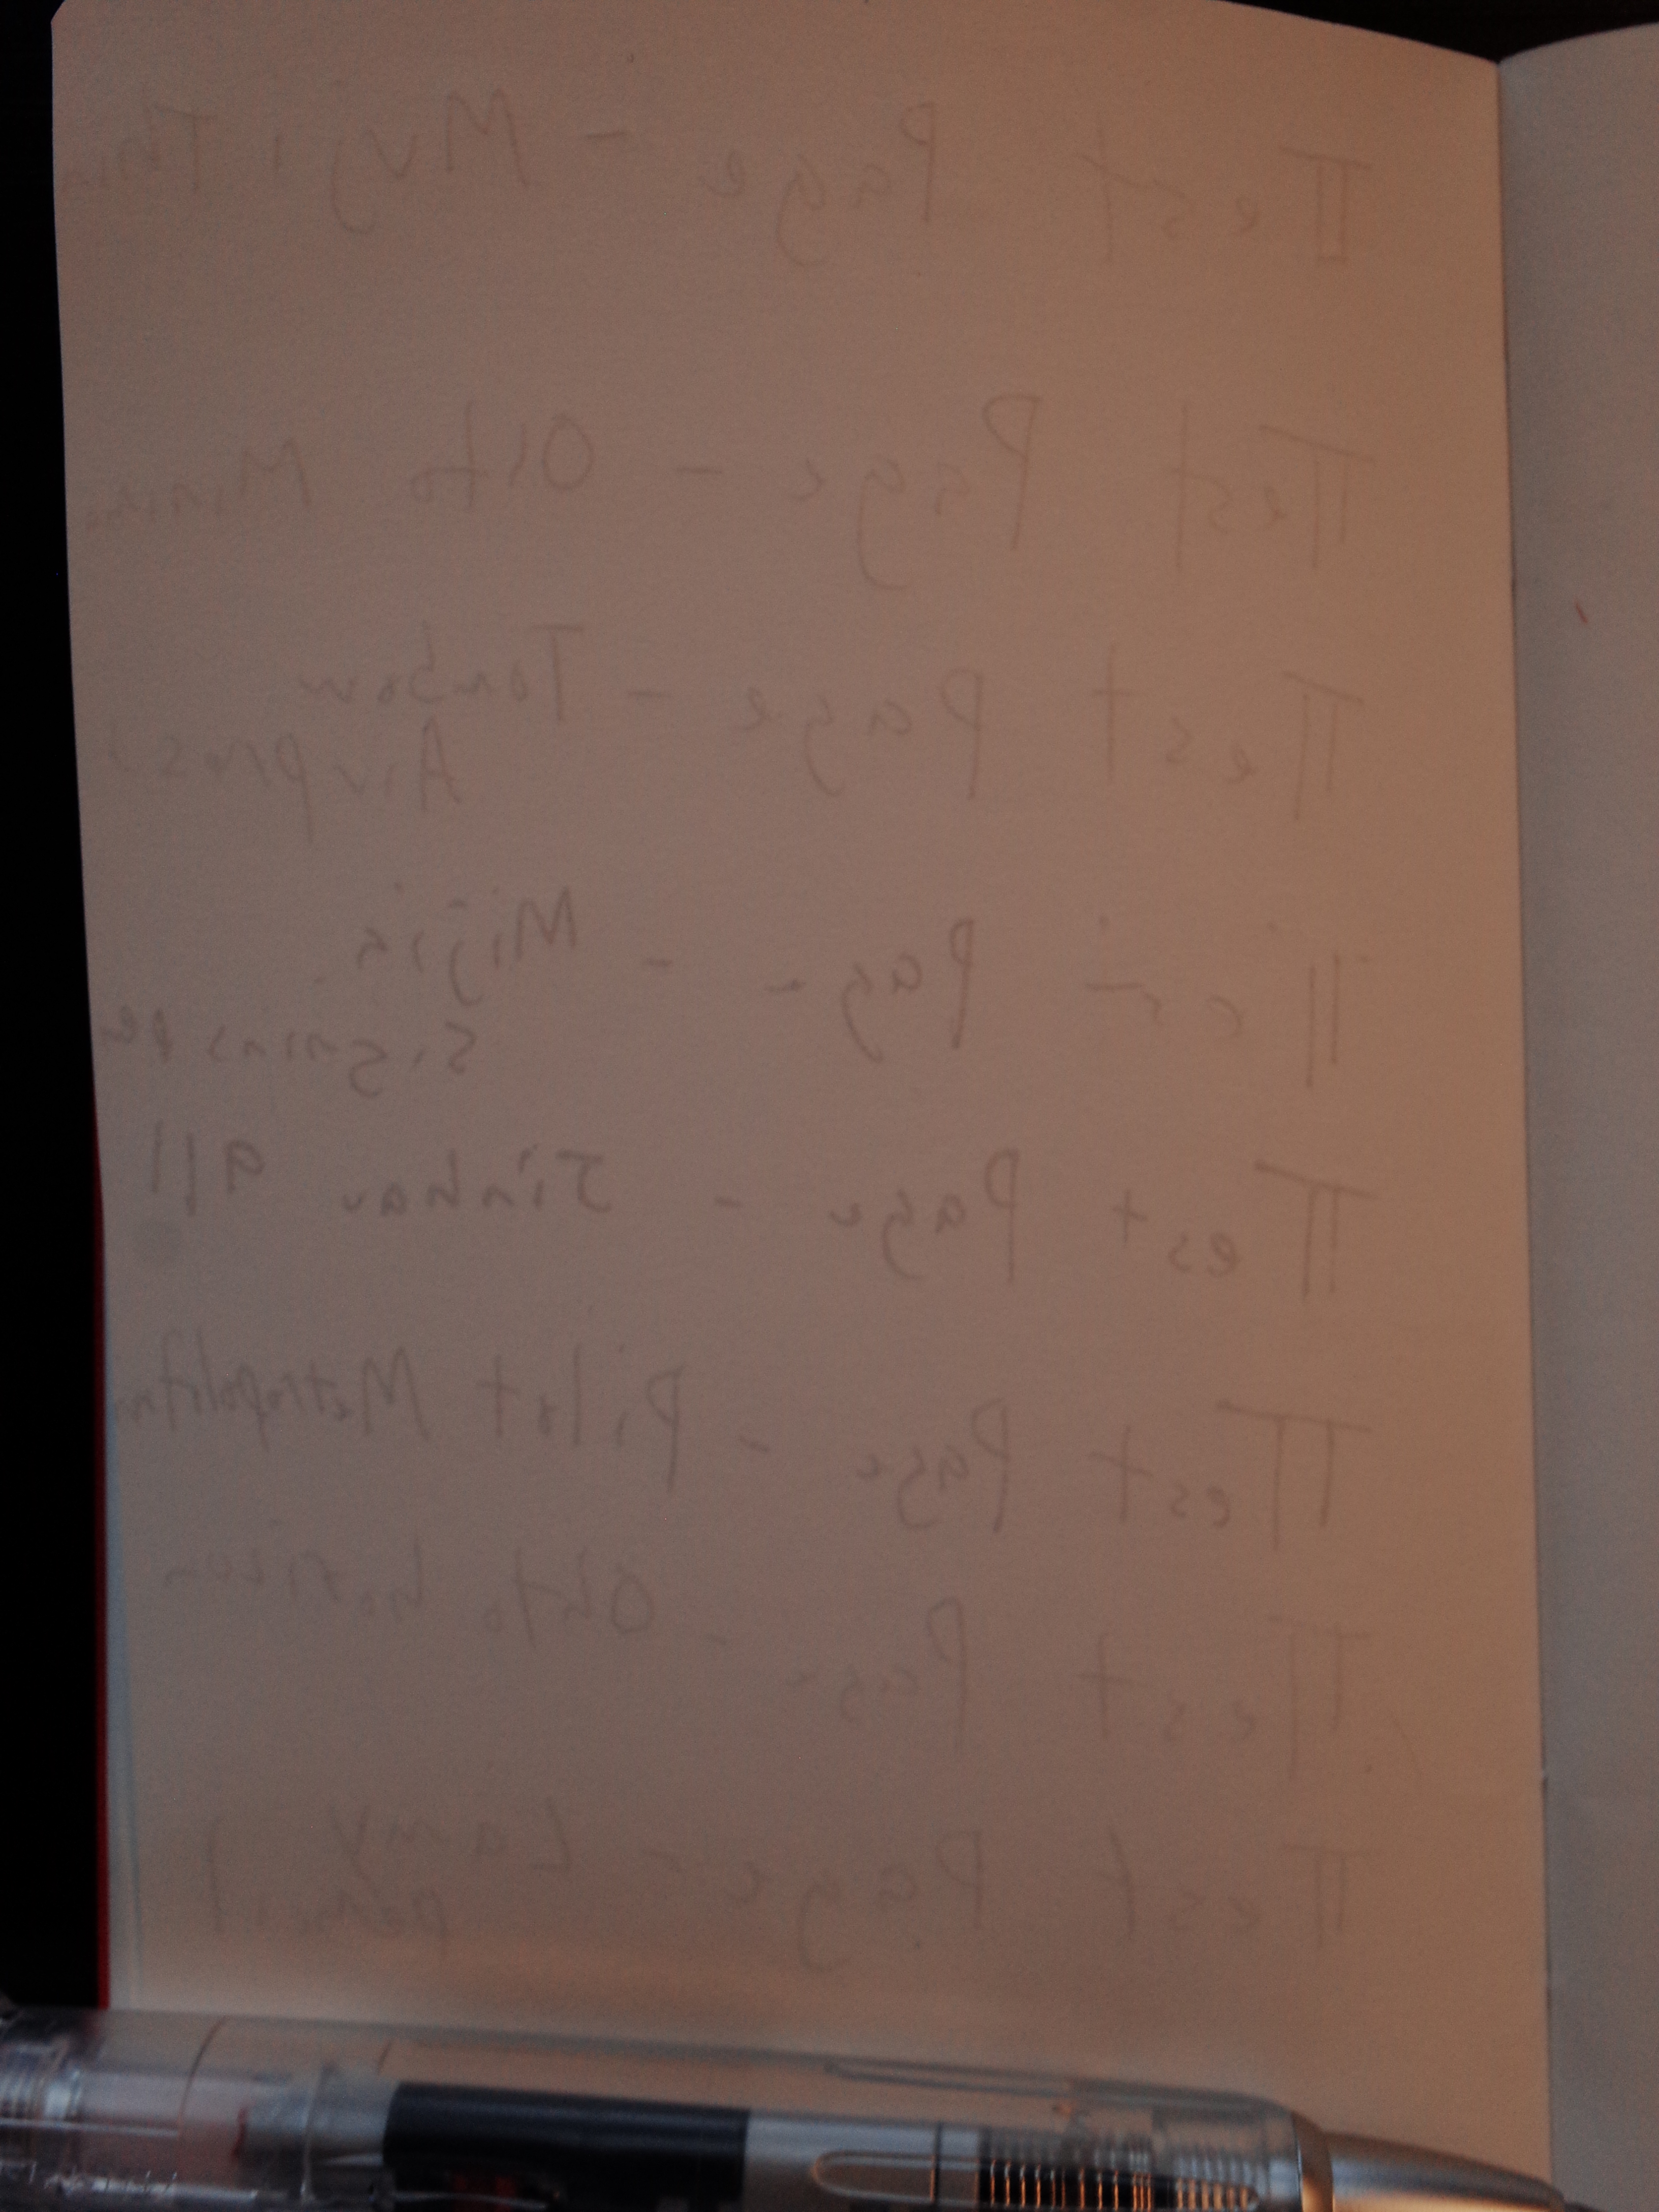 Test Page - Muji Thin
Test Page - Ohto Minim
Test Page - Tombow
Airpress
Test Page - Mijia
Signing Pe
Test Page - Jinhao 911
Test Page - Pilot Metropolitan
Test Page - Ohto horizon
Test Page - Lamy
pencil